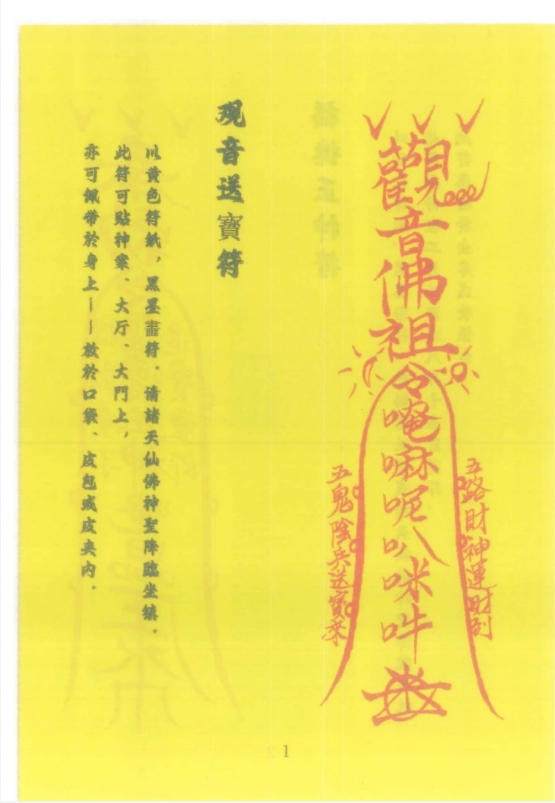 五路財神運財到
觀音佛祖令唵嘛呢叭咪吽
五鬼陰兵送寶來
观音送寶符
以黄色符紙，黑墨畵符．请諸天仙佛神聖降臨坐镇．
此符可贴神案、大厅、大門上，
亦可佩带於身上——放於口袋、皮包或皮夹内．
1